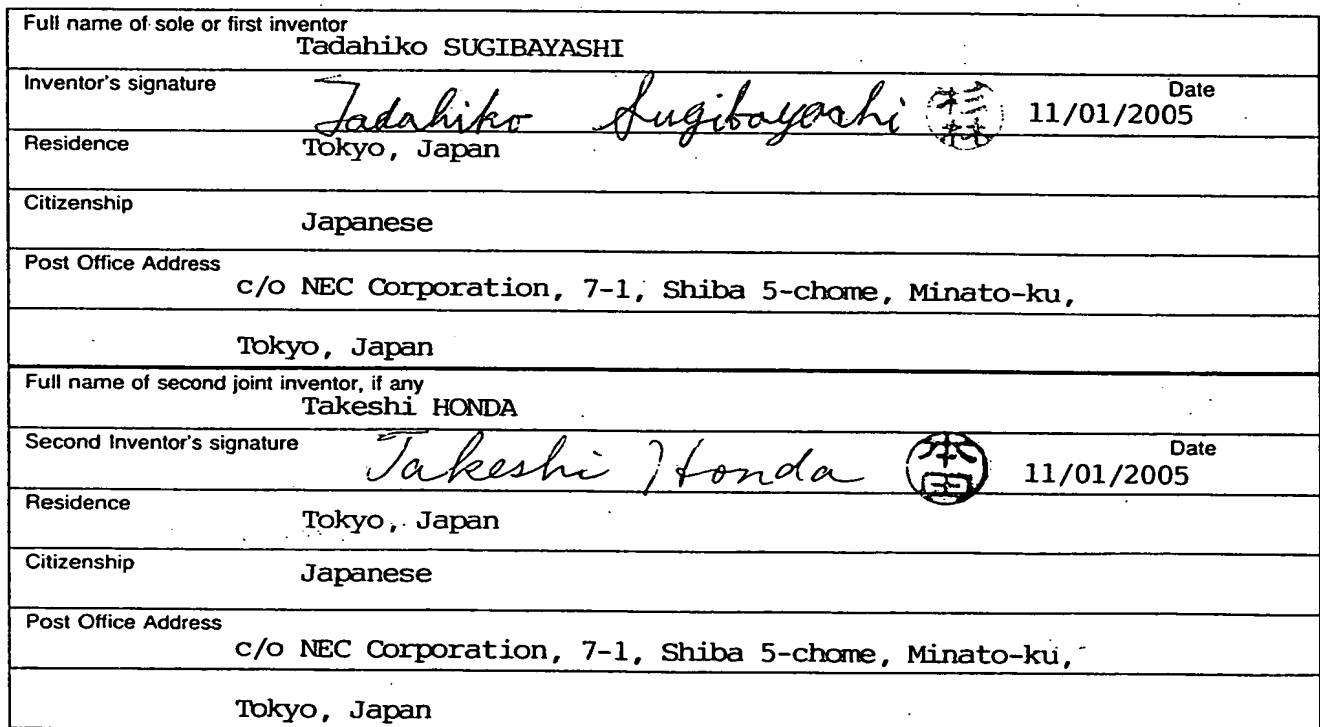 Full name of sole or first inventor
Tadahiko SUGIBAYASHI
Inventor's signature
Tadahiko Sugibayashi 杉林
Date
11/01/2005
Residence
Tokyo, Japan
Citizenship
Japanese
Post Office Address
c/o NEC Corporation, 7-1, Shiba 5-chome, Minato-ku,
Tokyo, Japan
Full name of second joint inventor, if any
Takeshi HONDA
Second Inventor's signature
Takeshi Honda 本田
Date
11/01/2005
Residence
Tokyo, Japan
Citizenship
Japanese
Post Office Address
c/o NEC Corporation, 7-1, Shiba 5-chome, Minato-ku,
Tokyo, Japan